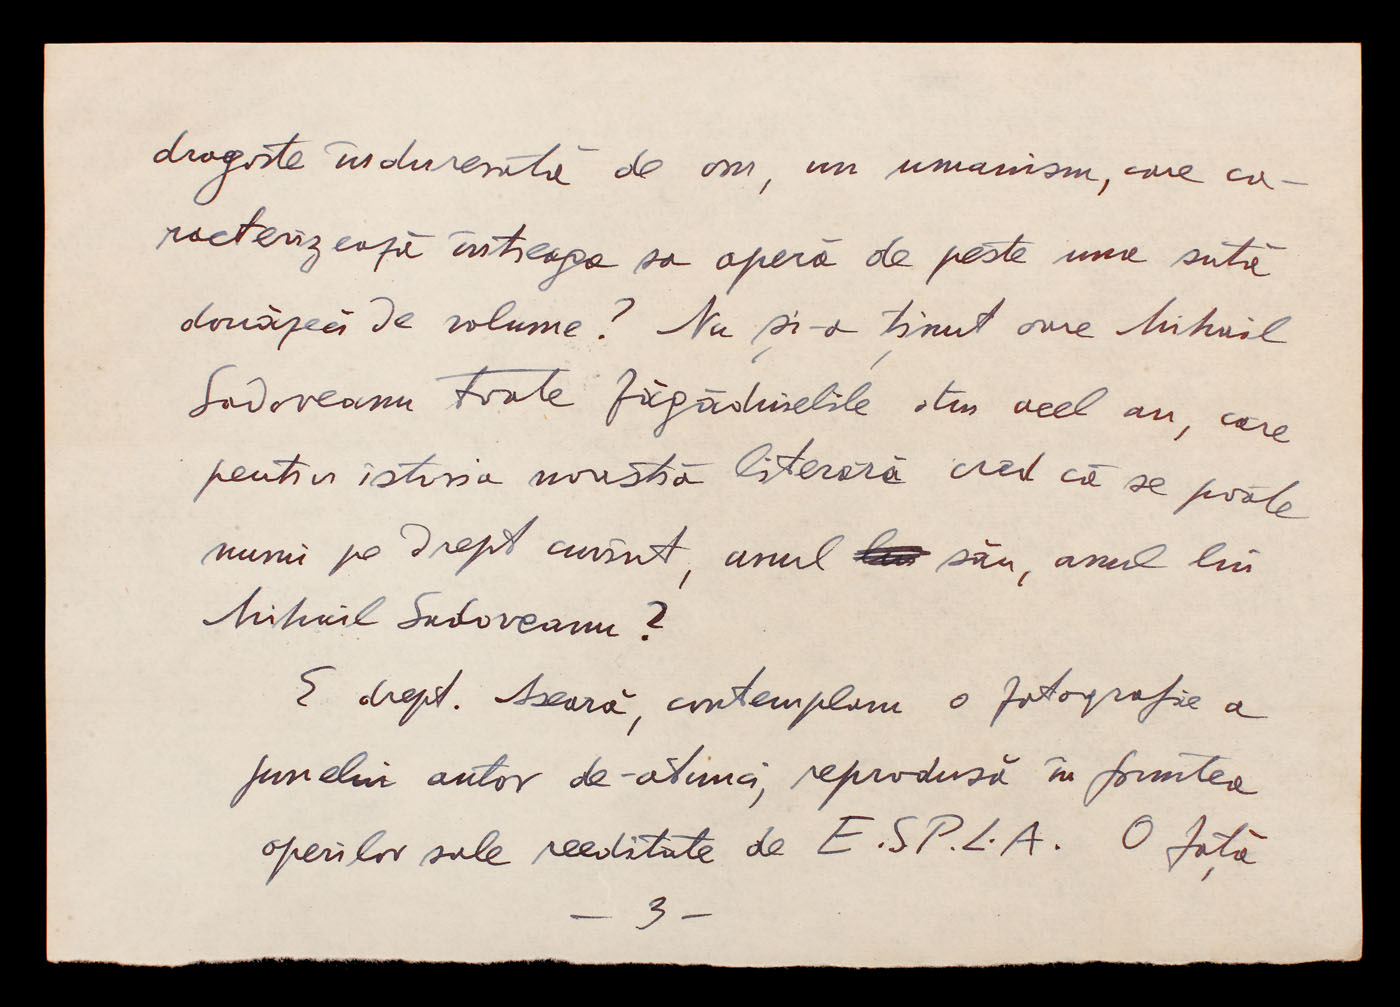 dragoste înduresată de om, un umanism, care ca-
racterizează întreaga sa operă de peste una sută
douăzeci de volume? Nu și-a ținut oare Mihail
Sadoveanu toate făgăduielile din acel an, care
pentru istoria noastră literară cred că se poate
numi pe drept cuvînt, anul său, anul lui
Mihail Sadoveanu?
E drept. Aseară, contemplam o fotografie a
junelui autor de-atunci, reprodusă în fruntea
operilor sale reeditate de E.S.P.L.A. O față
— 3 —